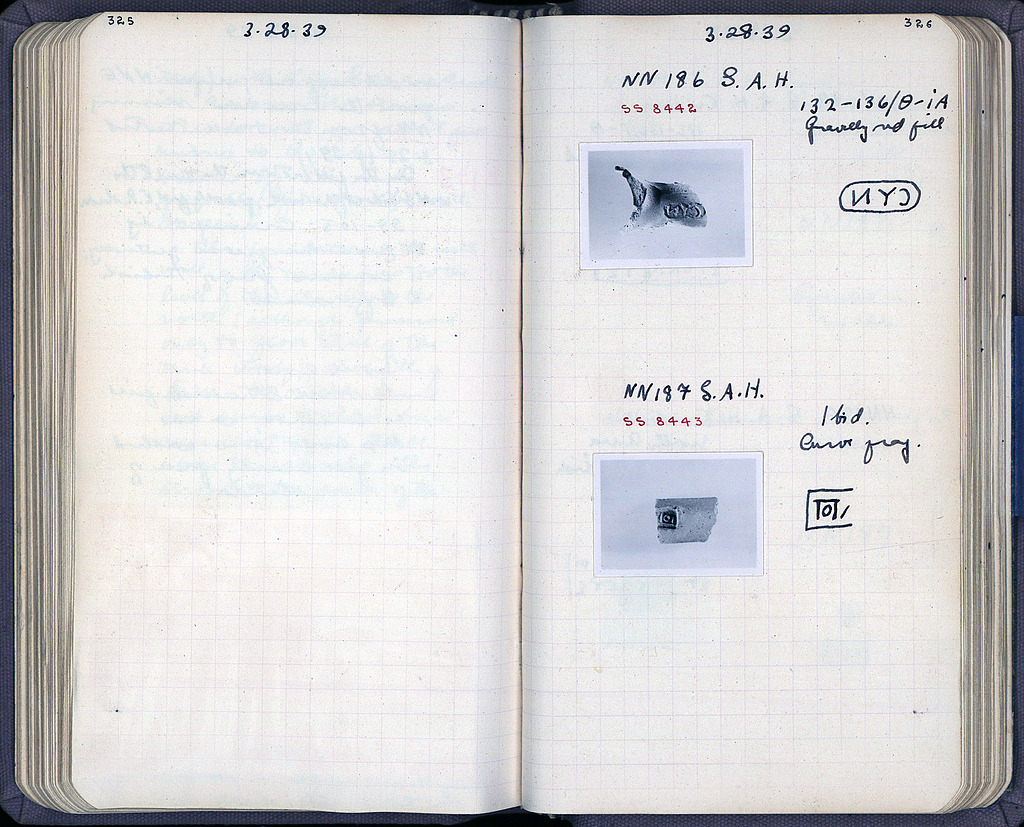 325
3·28·39
3·28·39
326
NN 186 S. A. H.
SS 8442
132-136/Θ-ΙΑ
Gravelly red fill
ИYϽ
NN187 S.A.H.
SS 8443
Ibid.
Curved frag.
ΤΟΙ